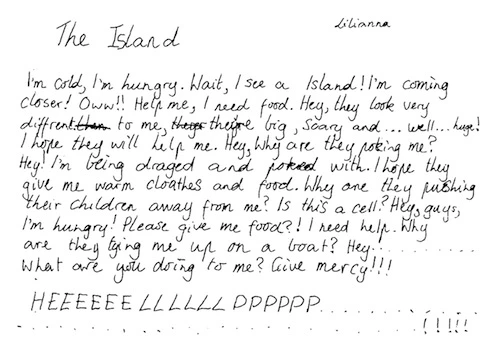 Lilianna
The Island
I'm cold, I'm hungry. Wait, I see a Island! I'm coming
closer! Oww!! Help me, I need food. Hey, they look very
diffrent to me, they're big, scary and... well... huge!
I hope they will help me. Hey, Why are they poking me?
Hey! I'm being draged and poked with. I hope they
give me warm cloathes and food. Why are they pushing
their children away from me? Is this a cell? Hey, guys,
I'm hungry! Please give me food?! I need help. Why
are they tying me up on a boat? Hey............
What are you doing to me? Give mercy!!!
HEEEEEELLLLLLLPPPPPP..............
..............................................!!!!!